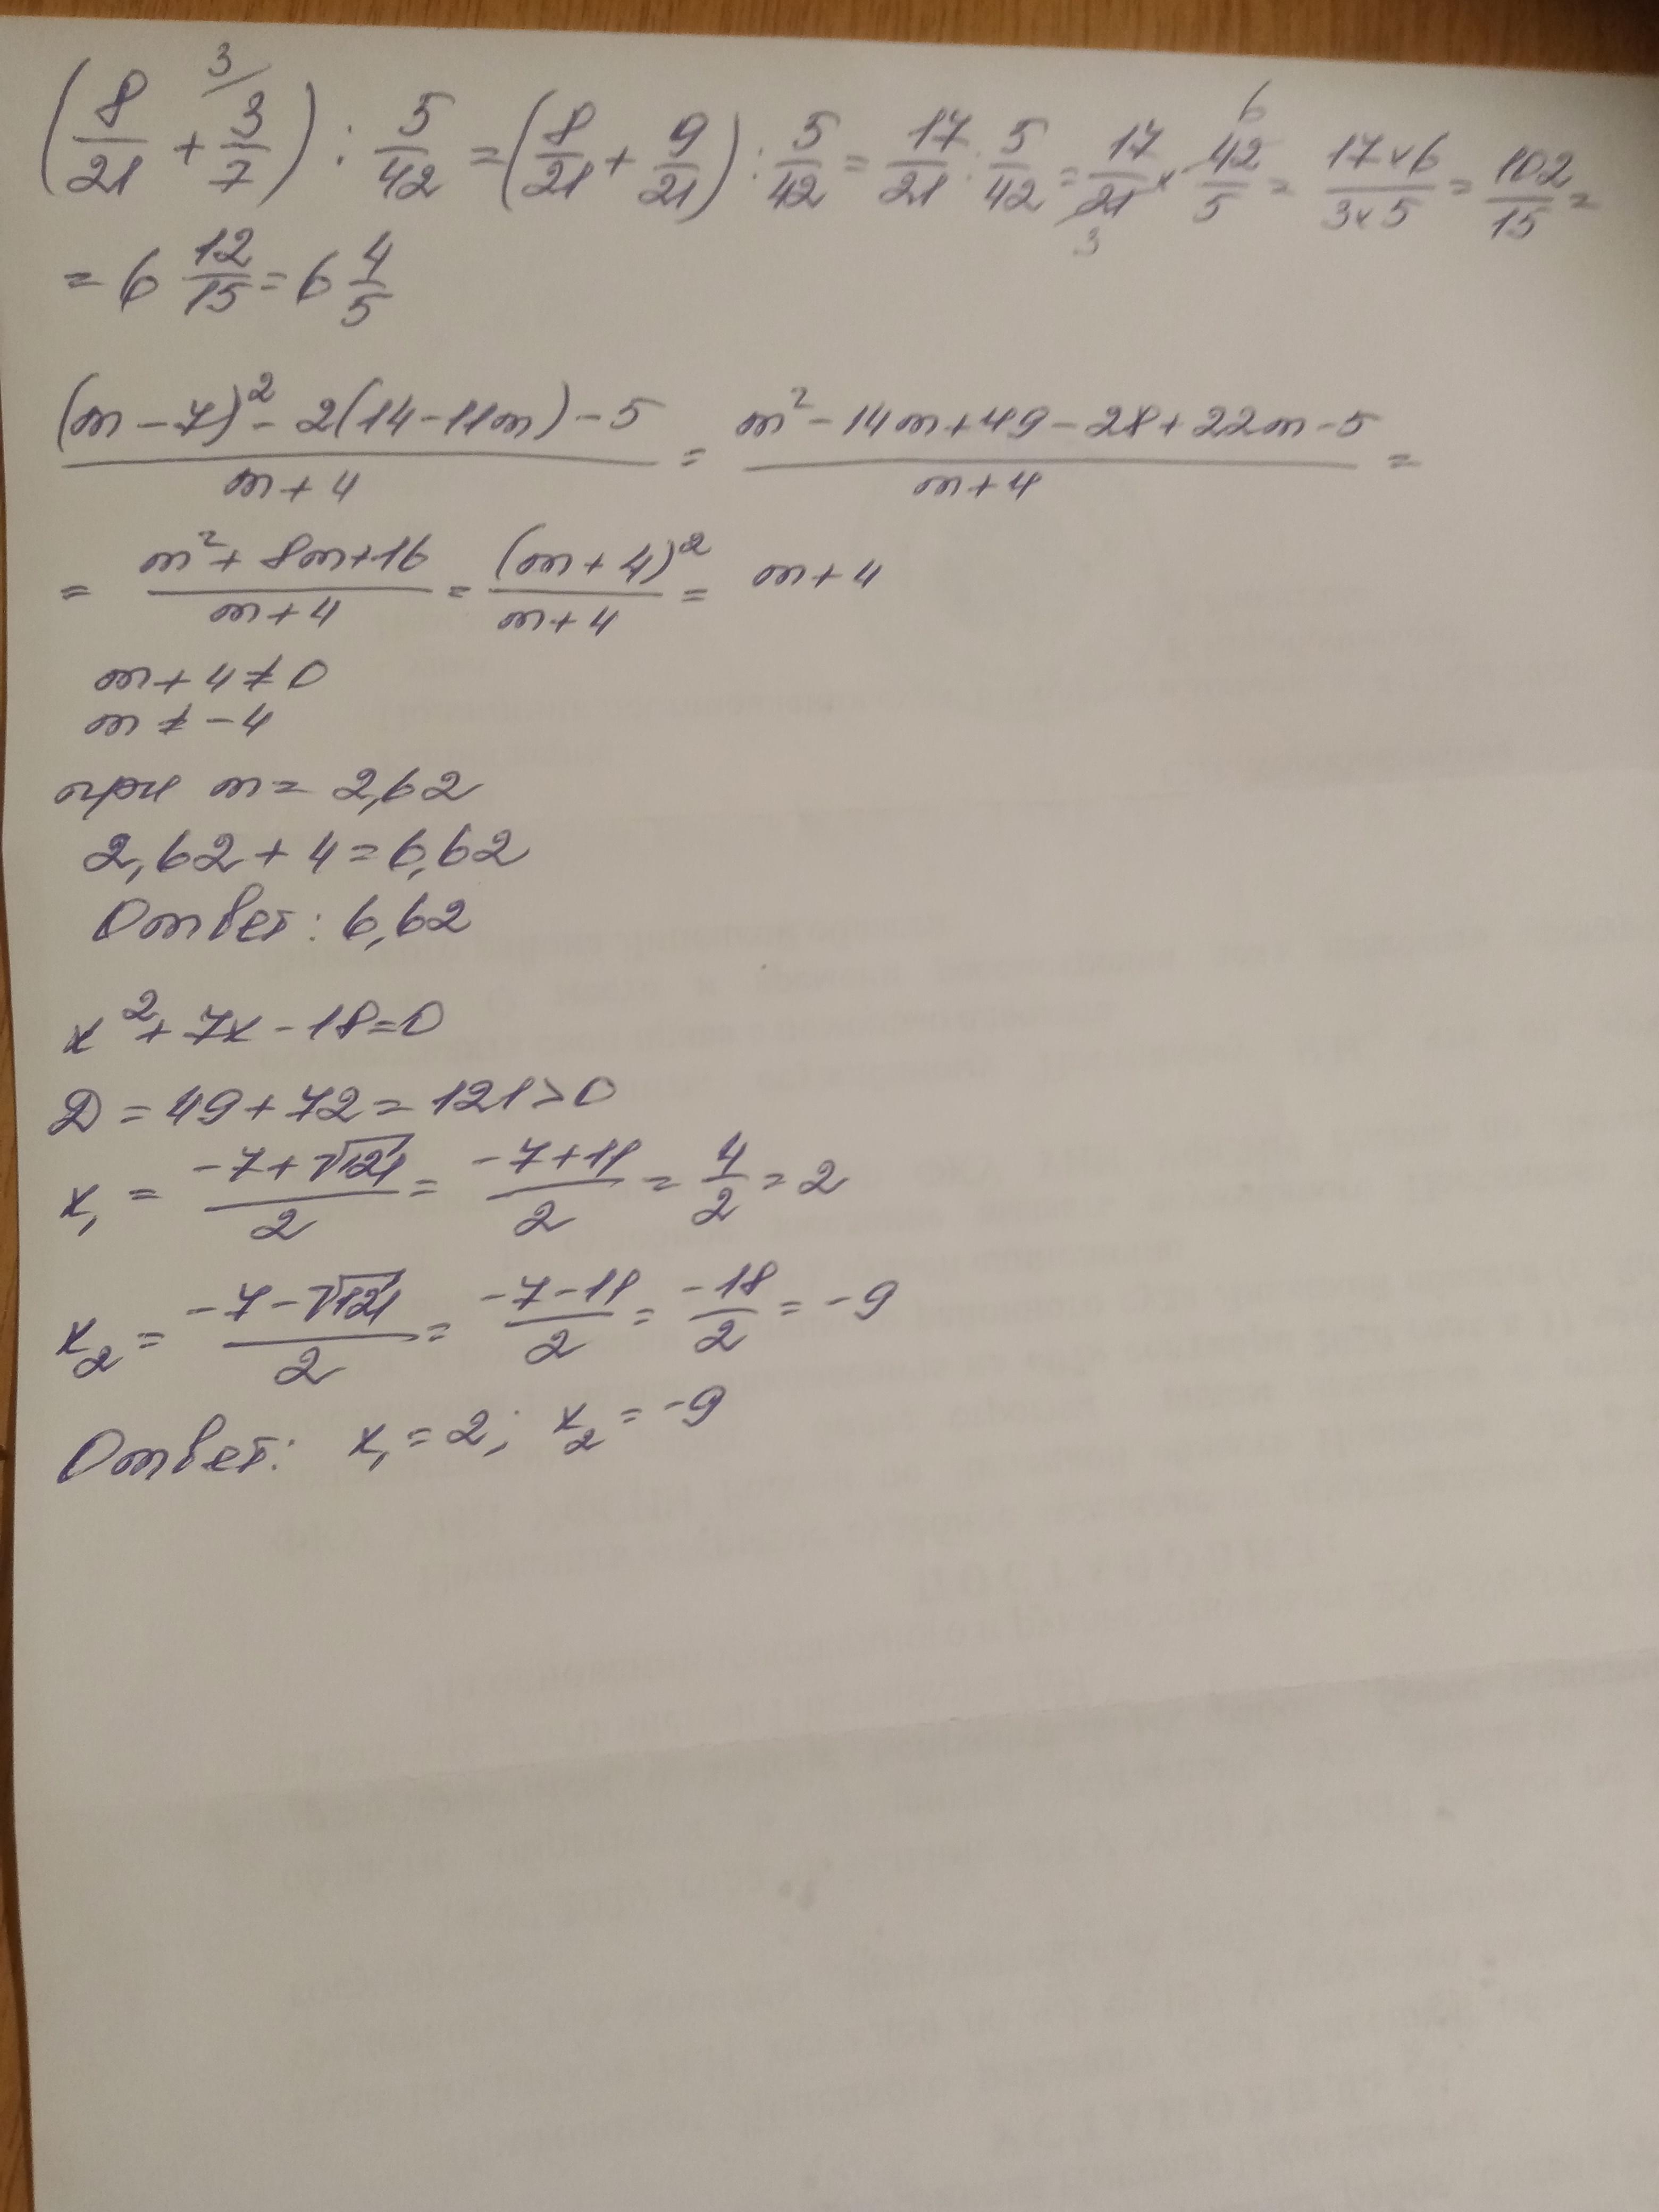 (8/21 + 3/7) : 5/42 = (8/21 + 9/21) : 5/42 = 17/21 : 5/42 = 17/21 × 42/5 = 17×6/3×5 = 102/15 =
= 6 12/15 = 6 4/5
(m-7)² - 2(14-11m) - 5 / m+4 = m² - 14m + 49 - 28 + 22m - 5 / m+4 =
= m² + 8m + 16 / m+4 = (m+4)² / m+4 = m+4
m+4 ≠ 0
m ≠ -4
при m = 2,62
2,62 + 4 = 6,62
Ответ: 6,62
x² + 7x - 18 = 0
D = 49 + 72 = 121 > 0
x₁ = -7+√121 / 2 = -7+11 / 2 = 4/2 = 2
x₂ = -7-√121 / 2 = -7-11 / 2 = -18/2 = -9
Ответ: x₁ = 2; x₂ = -9